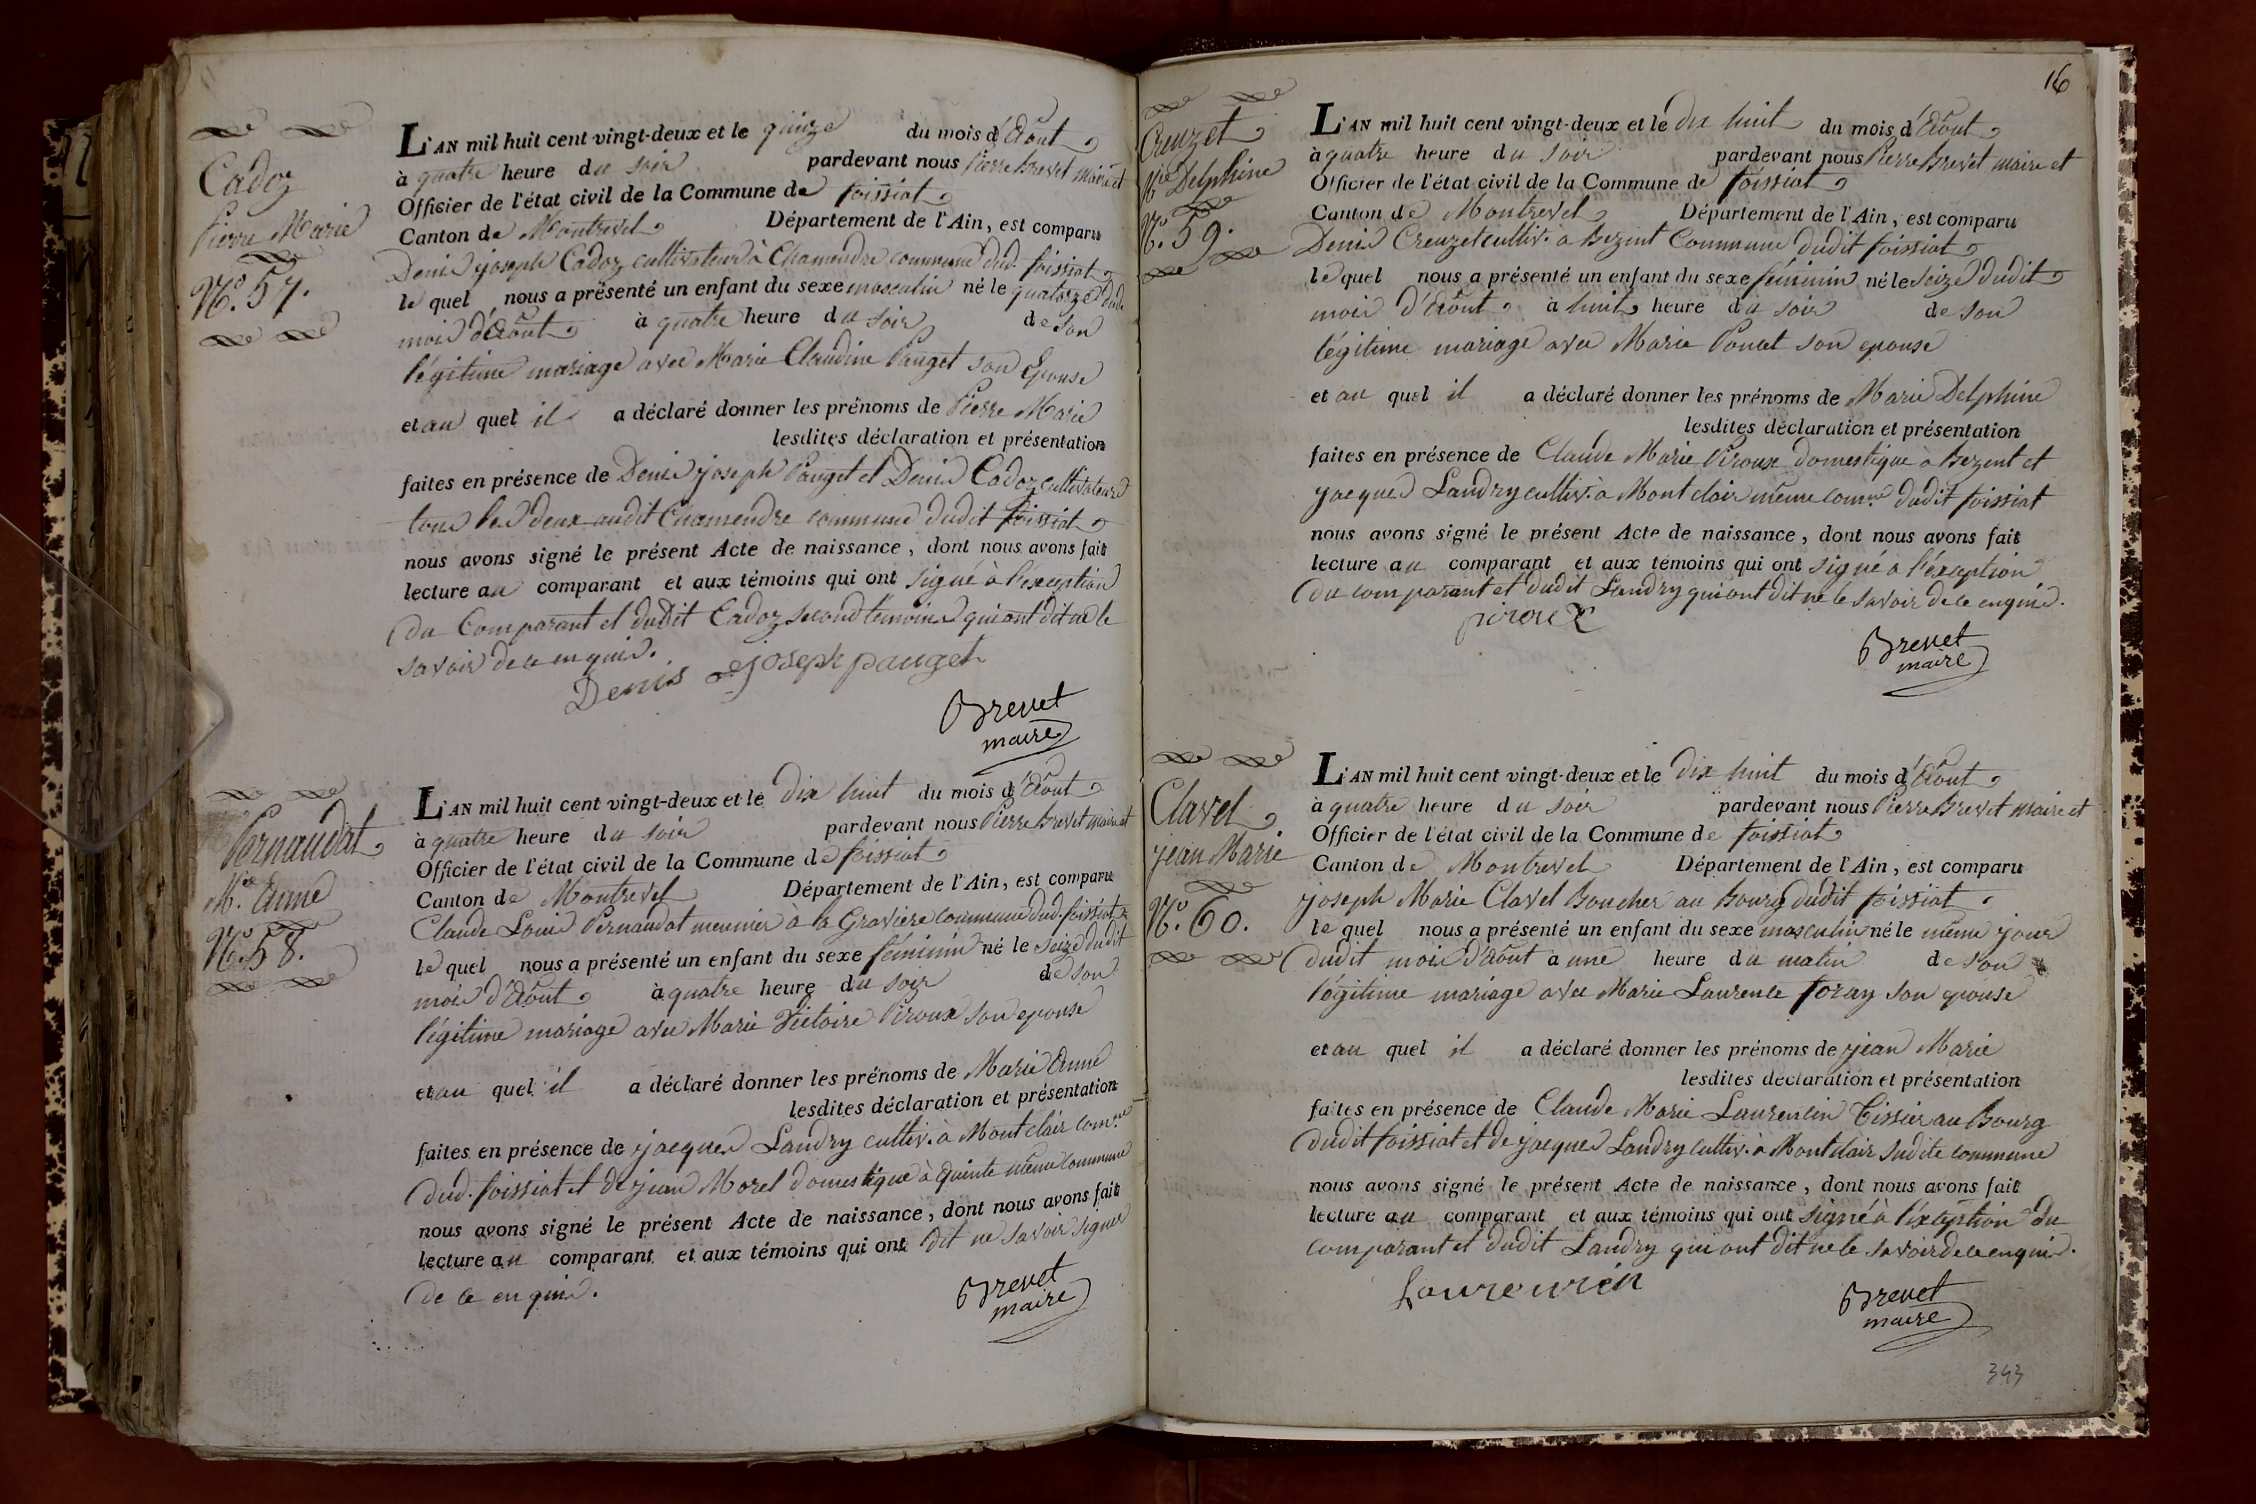 Cadoz
Pierre Marie
N.º 57.
L'AN mil huit cent vingt-deux et le quinze du mois d'Août
à quatre heure du soir pardevant nous Pierre Brevet Maire et
Officier de l'état civil de la Commune de foissiat
Canton de Montrevel Département de l'Ain, est comparu
Denis joseph Cadoz cultivateur à Chamendre commune dud. foissiat
le quel nous a présenté un enfant du sexe masculin né le quatorze dudit
mois d'Août à quatre heure du soir de son
légitime mariage avec Marie Claudine Pauget son Epouse
et au quel il a déclaré donner les prénoms de Pierre Marie
lesdites déclaration et présentation
faites en présence de Denis joseph Pauget et Denis Cadoz cultivateurs
tous les deux audit Chamendre commune dudit foissiat
nous avons signé le présent Acte de naissance, dont nous avons fait
lecture au comparant et aux témoins qui ont signé à l'éxception
du Comparant et dudit Cadoz second témoins qui ont dit ne le
savoir de ce enquis.
Denis joseph pauget
Brevet
maire
Pernaudat
M.ie Anne
N.º 58.
L'AN mil huit cent vingt-deux et le dix huit du mois d'Août
à quatre heure du soir pardevant nous Pierre Brevet Maire et
Officier de l'état civil de la Commune de foissiat
Canton de Montrevel Département de l'Ain, est comparu
Claude Louis Pernaudat meunier à la Gravière commune dud. foissiat
le quel nous a présenté un enfant du sexe féminin né le seize dudit
mois d'Août à quatre heure du soir de son
légitime mariage avec Marie Victoire Piroux son epouse
et au quel il a déclaré donner les prénoms de Marie Anne
lesdites déclaration et présentation
faites en présence de jacques Landry cultiv. à Mont clair com.ne
dud. foissiat et de jean Morel domestique à Quinte même commune
nous avons signé le présent Acte de naissance, dont nous avons fait
lecture au comparant et aux témoins qui ont dit ne savoir signer
de ce enquis.
Brevet
maire
16
Creuzet
M.ie Delphine
N.º 59.
L'AN mil huit cent vingt-deux et le dix huit du mois d'Août
à quatre heure du soir pardevant nous Pierre Brevet maire et
Officier de l'état civil de la Commune de foissiat
Canton de Montrevel Département de l'Ain, est comparu
Denis Creuzet cultiv. à Bezent Commune dudit foissiat
le quel nous a présenté un enfant du sexe féminin né le seize dudit
mois d'Août à huit heure du soir de son
légitime mariage avec Marie Poncet son epouse
et au quel il a déclaré donner les prénoms de Marie Delphine
lesdites déclaration et présentation
faites en présence de Claude Marie Piroux domestique à Bezent et
jacques Landry cultiv. à Mont clair même com.ne dudit foissiat
nous avons signé le présent Acte de naissance, dont nous avons fait
lecture au comparant et aux témoins qui ont signé à l'éxception
du comparant et dudit Landry qui ont dit ne le savoir de ce enquis.
piroux
Brevet
maire
Clavel
jean Marie
N.º 60.
L'AN mil huit cent vingt-deux et le dix huit du mois d'Août
à quatre heure du soir pardevant nous Pierre Brevet Maire et
Officier de l'état civil de la Commune de foissiat
Canton de Montrevel Département de l'Ain, est comparu
joseph Marie Clavel Boucher au Bourg dudit foissiat
le quel nous a présenté un enfant du sexe masculin né le même jour
dudit mois d'Août à une heure du matin de son
légitime mariage avec Marie Laurente foray son epouse
et au quel il a déclaré donner les prénoms de jean Marie
lesdites déclaration et présentation
faites en présence de Claude Marie Laurencin Tissier au Bourg
dudit foissiat et de jacques Landry cultiv. à Mont clair sudite commune
nous avons signé le présent Acte de naissance, dont nous avons fait
lecture au comparant et aux témoins qui ont signé à l'éxception du
comparant et dudit Landry qui ont dit ne le savoir de ce enquis.
Laurencin
Brevet
maire
343